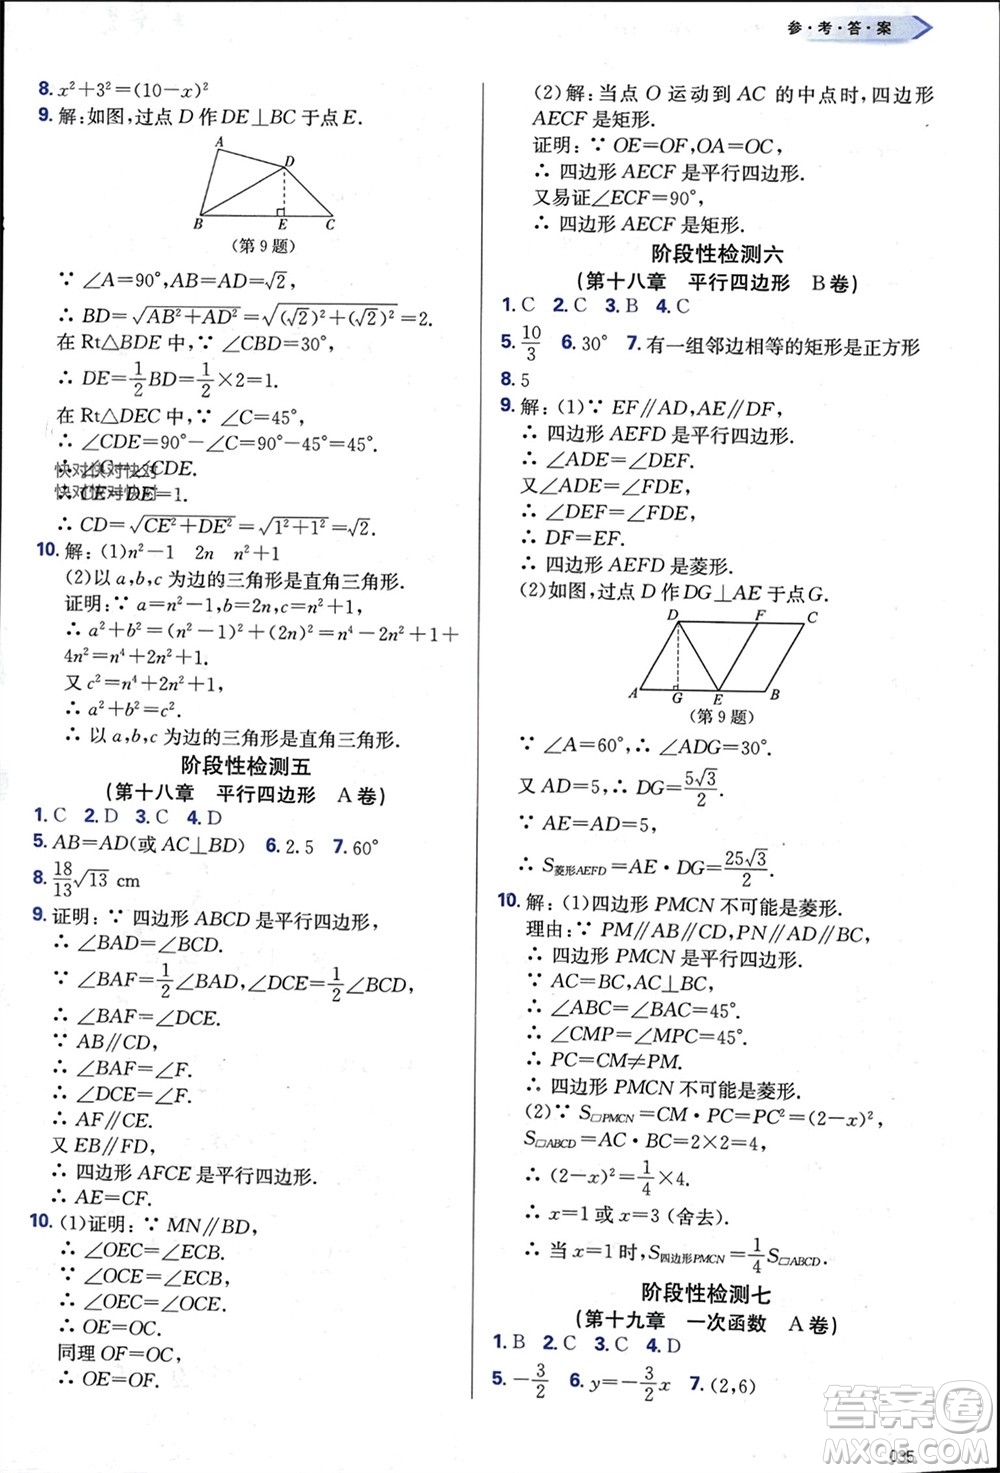 参·考·答·案
8. x²+3²=(10-x)²
9. 解:如图,过点 D 作 DE⊥BC 于点 E.
A
D
B
E
C
(第 9 题)
∵ ∠A=90°,AB=AD=√2,
∴ BD=√(AB²+AD²)=√((√2)²+(√2)²)=2.
在 Rt△BDE 中,∵ ∠CBD=30°,
∴ DE=1/2BD=1/2×2=1.
在 Rt△DEC 中,∵ ∠C=45°,
∴ ∠CDE=90°-∠C=90°-45°=45°.
∴ ∠C=∠CDE.
∴ CE=DE=1.
∴ CD=√(CE²+DE²)=√(1²+1²)=√2.
10. 解:(1)n²-1 2n n²+1
(2)以 a,b,c 为边的三角形是直角三角形.
证明:∵ a=n²-1,b=2n,c=n²+1,
∴ a²+b²=(n²-1)²+(2n)²=n⁴-2n²+1+
4n²=n⁴+2n²+1.
又 c²=n⁴+2n²+1,
∴ a²+b²=c².
∴ 以 a,b,c 为边的三角形是直角三角形.
阶段性检测五
(第十八章 平行四边形 A 卷)
1. C 2. D 3. C 4. D
5. AB=AD(或 AC⊥BD) 6. 2.5 7. 60°
8. 18/13√13 cm
9. 证明:∵ 四边形 ABCD 是平行四边形,
∴ ∠BAD=∠BCD.
∵ ∠BAF=1/2∠BAD,∠DCE=1/2∠BCD,
∴ ∠BAF=∠DCE.
∵ AB∥CD,
∴ ∠BAF=∠F.
∴ ∠DCE=∠F.
∴ AF∥CE.
又 EB∥FD,
∴ 四边形 AFCE 是平行四边形.
∴ AE=CF.
10. (1)证明:∵ MN∥BD,
∴ ∠OEC=∠ECB.
∵ ∠OCE=∠ECB,
∴ ∠OEC=∠OCE.
∴ OE=OC.
同理 OF=OC,
∴ OE=OF.
(2)解:当点 O 运动到 AC 的中点时,四边形
AECF 是矩形.
证明:∵ OE=OF,OA=OC,
∴ 四边形 AECF 是平行四边形.
又易证∠ECF=90°,
∴ 四边形 AECF 是矩形.
阶段性检测六
(第十八章 平行四边形 B 卷)
1. C 2. C 3. B 4. C
5. 10/3 6. 30° 7. 有一组邻边相等的矩形是正方形
8. 5
9. 解:(1)∵ EF∥AD,AE∥DF,
∴ 四边形 AEFD 是平行四边形.
∴ ∠ADE=∠FED.
又∠ADE=∠FDE,
∴ ∠DEF=∠FDE.
∴ DF=EF.
∴ 四边形 AEFD 是菱形.
(2)如图,过点 D 作 DG⊥AE 于点 G.
D
F
C
A
G
E
B
(第 9 题)
∵ ∠A=60°,∴ ∠ADG=30°.
又 AD=5,∴ DG=5√3/2.
∵ AE=AD=5,
∴ S菱形AEFD=AE·DG=25√3/2.
10. 解:(1)四边形 PMCN 不可能是菱形.
理由:∵ PM∥AB∥CD,PN∥AD∥BC,
∴ 四边形 PMCN 是平行四边形.
∵ AC=BC,AC⊥BC,
∴ ∠ABC=∠BAC=45°.
∴ ∠CMP=∠MPC=45°.
∴ PC=CM≠PM.
∴ 四边形 PMCN 不可能是菱形.
(2)∵ S▱PMCN=CM·PC=PC²=(2-x)²,
S▱ABCD=AC·BC=2×2=4,
∴ (2-x)²=1/4×4.
∴ x=1 或 x=3 (舍去).
∴ 当 x=1 时,S四边形PMCN=1/4S▱ABCD.
阶段性检测七
(第十九章 一次函数 A 卷)
1. B 2. C 3. C 4. D
5. -3/2 6. y=-3/2x 7. (2,6)
答案圈
MXQE.COM
035